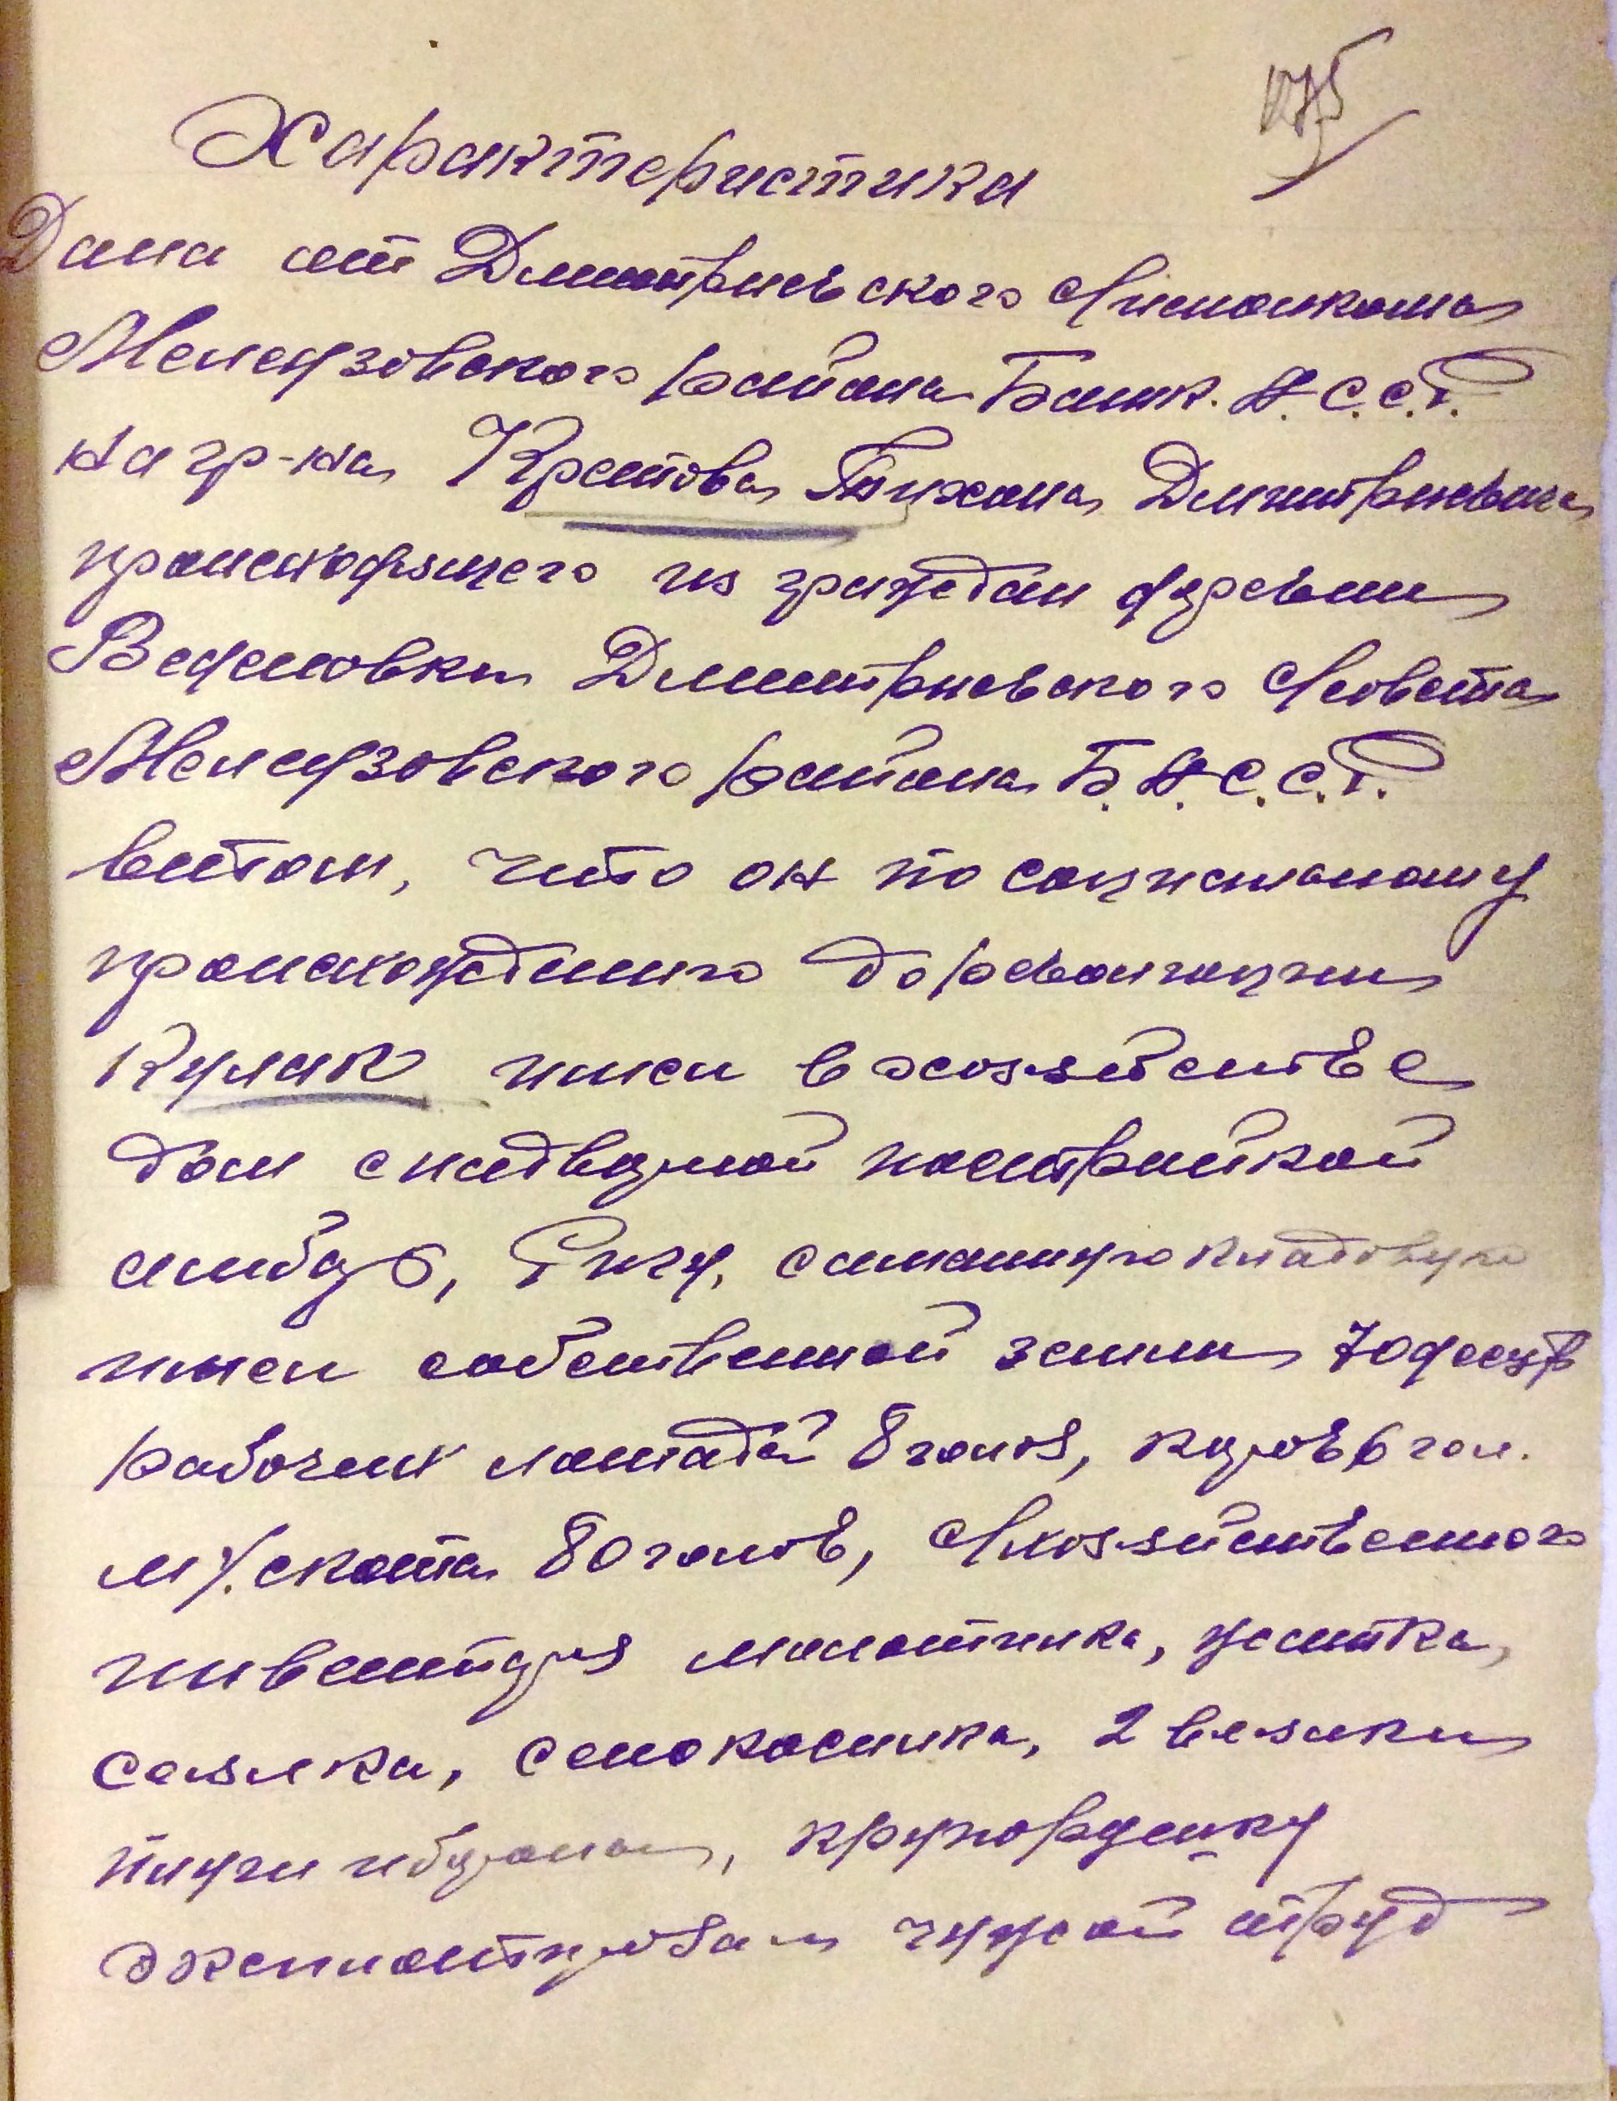 175
Характеристика
Дана от Дмитриевского с/исполкома
Мелеузовского района Башк. А.С.С.Р.
на гр-на Кретова Тихона Дмитриевича
происходящего из граждан деревни
Веденовки Дмитриевского с/совета
Мелеузовского района Б.А.С.С.Р.
втом, что он по социяльному
происхождению до революции
Кулак имел в хозяйстве
дом с надворной постройкой
амбар, Ригу, саманную кладовую
имел собственной земли 70 десят
рабочих лошадей 8 голов, коров 6 гол.
м/. скота 80 голов, с/хозяйственного
инвентаря молотилка, жнитка,
сеялка, сенокосилка, 2 веялки
плуги и борона, крупорушку
эксплоатировал чужой труд